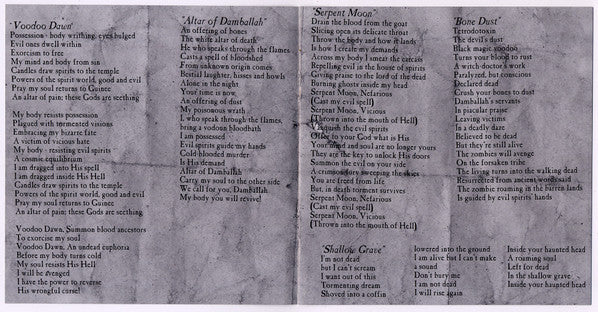 'Voodoo Dawn'
Possession - body writhing, eyes bulged
Evil ones dwell within
Exorcism to free
My mind and body from sin
Candles draw spirits to the temple
Powers of the spirit world, good and evil
Pray my soul returns to Guinee
An altar of pain; these Gods are seething
My body resists possession
Plagued with tormented visions
Embracing my bizarre fate
A victim of vicious hate
My body - resisting evil spirits
A cosmic equilibrium
I am dragged into His spell
I am dragged inside His Hell
Candles draw spirits to the temple
Powers of the spirit world, good and evil
Pray my soul returns to Guinee
An altar of pain; these Gods are seething
Voodoo Dawn, Summon blood ancestors
To exorcise my soul
Voodoo Dawn, An undead euphoria
Before my body turns cold
My soul resists His Hell
I will be avenged
I have the power to reverse
His wrongful curse!
"Altar of Damballah"
An offering of bones
The white altar of death
He who speaks through the flames
Casts a spell of bloodshed
From unknown origin comes
Bestial laughter, hisses and howls
Alone in the night
Your time is now
An offering of dust
My poisonous wrath
I, who speak through the flames,
bring a vodoun bloodbath
I am possessed
Evil spirits guide my hands
Cold-blooded murder
Is His demand
Altar of Damballah
Carry my soul to the other side
We call for you, Damballah
My body you will revive!
"Serpent Moon"
Drain the blood from the goat
Slicing open its delicate throat
Throw the body and how it lands
Is how I create my demands
Across my body I smear the carcass
Repelling evil in the house of spirits
Giving praise to the lord of the dead
Burning ghosts inside my head
Serpent Moon, Nefarious
(Cast my evil spell)
Serpent Moon, Vicious
(Thrown into the mouth of Hell)
Vanquish the evil spirits
Offer to your God what is His
Your mind and soul are no longer yours
They are the key to unlock His doors
Summon the evil on your side
A crimson fury sweeping the skies
You are freed from life
But, in death torment survives
Serpent Moon, Nefarious
(Cast my evil spell)
Serpent Moon, Vicious
(Thrown into the mouth of Hell)
"Bone Dust"
Tetrodotoxin
The devil's dust
Black magic voodoo
Turns your blood to rust
A witch-doctor's work
Paralyzed, but conscious
Declared dead
Crush your bones to dust
Damballah's servants
In piacular praise
Leaving victims
In a deadly daze
Believed to be dead
But they're still alive
The zombies will avenge
On the forsaken tribe
The living turns into the walking dead
Resurrected from ancient words said
The zombie roaming in the barren lands
Is guided by evil spirits' hands
"Shallow Grave"
I'm not dead
but I can't scream
I want out of this
Tormenting dream
Shoved into a coffin
lowered into the ground
I am alive but I can't make
a sound
Don't bury me
I am not dead
I will rise again
Inside your haunted head
A roaming soul
Left for dead
In the shallow grave
Inside your haunted head